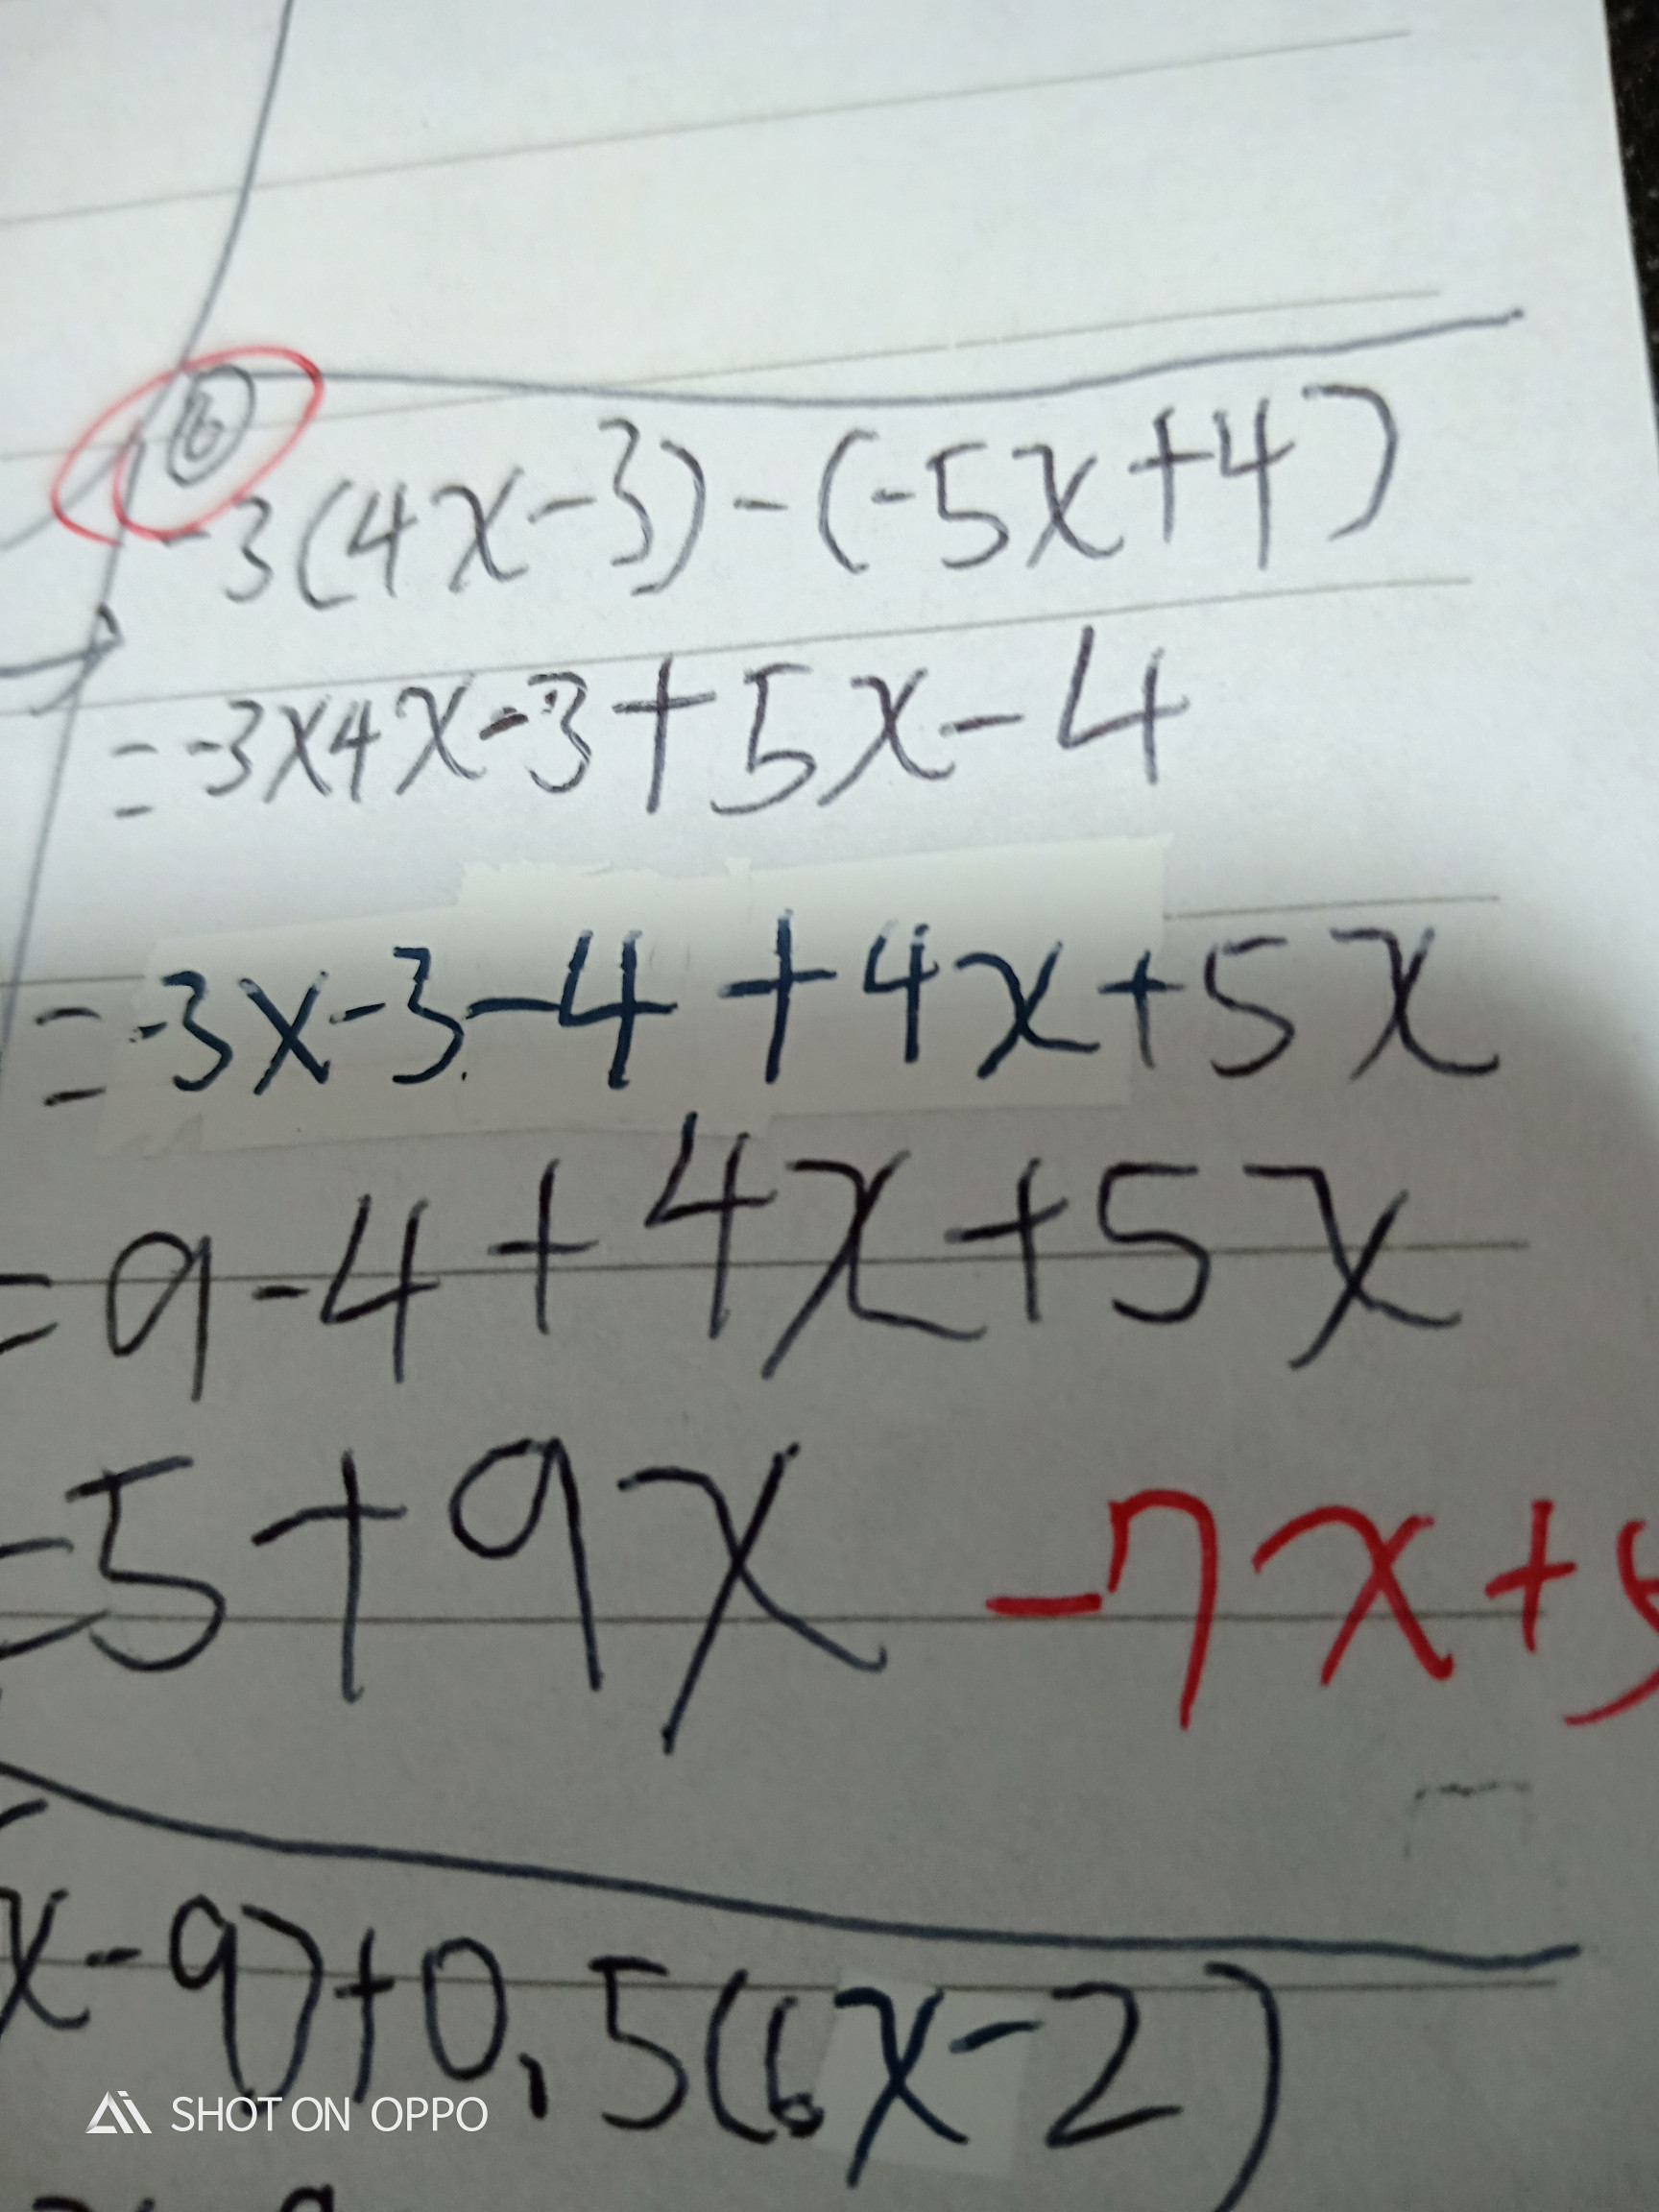 ⑥
-3(4x-3)-(-5x+4)
=-3×4x-3+5x-4
=-3×-3-4+4x+5x
=9-4+4x+5x
=5+9x -7x+5
x-9)+0.5(6x-2)
SHOT ON OPPO